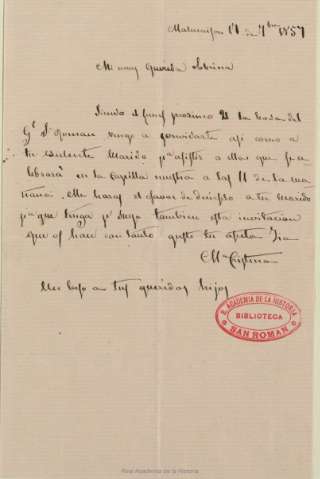 Malmaison 17 de 7bre 1857
Mi muy Querida Sobrina
Siendo el Juevs proximo la boda del
Gl. Sn Roman vengo a convidarte asi como a
tu escelente Marido pa asistir a ella que se ce
lebrará en la Capilla nuestra a las 11 de la ma
ñana. Me haras el favor de decirselo a tu marido
pa que tenga pr suya tambien esta invitacion
que os hace con tanto gusto tu afecta Tia
Ma Cristina
Un beso a tus queridos hijos
R. ACADEMIA DE LA HISTORIA
BIBLIOTECA
SAN ROMAN
Real Academia de la Historia